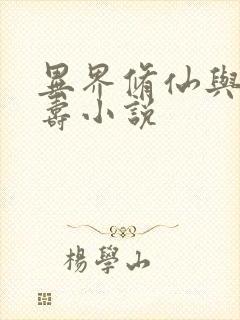 異界脩仙與
壽小説
楊學山